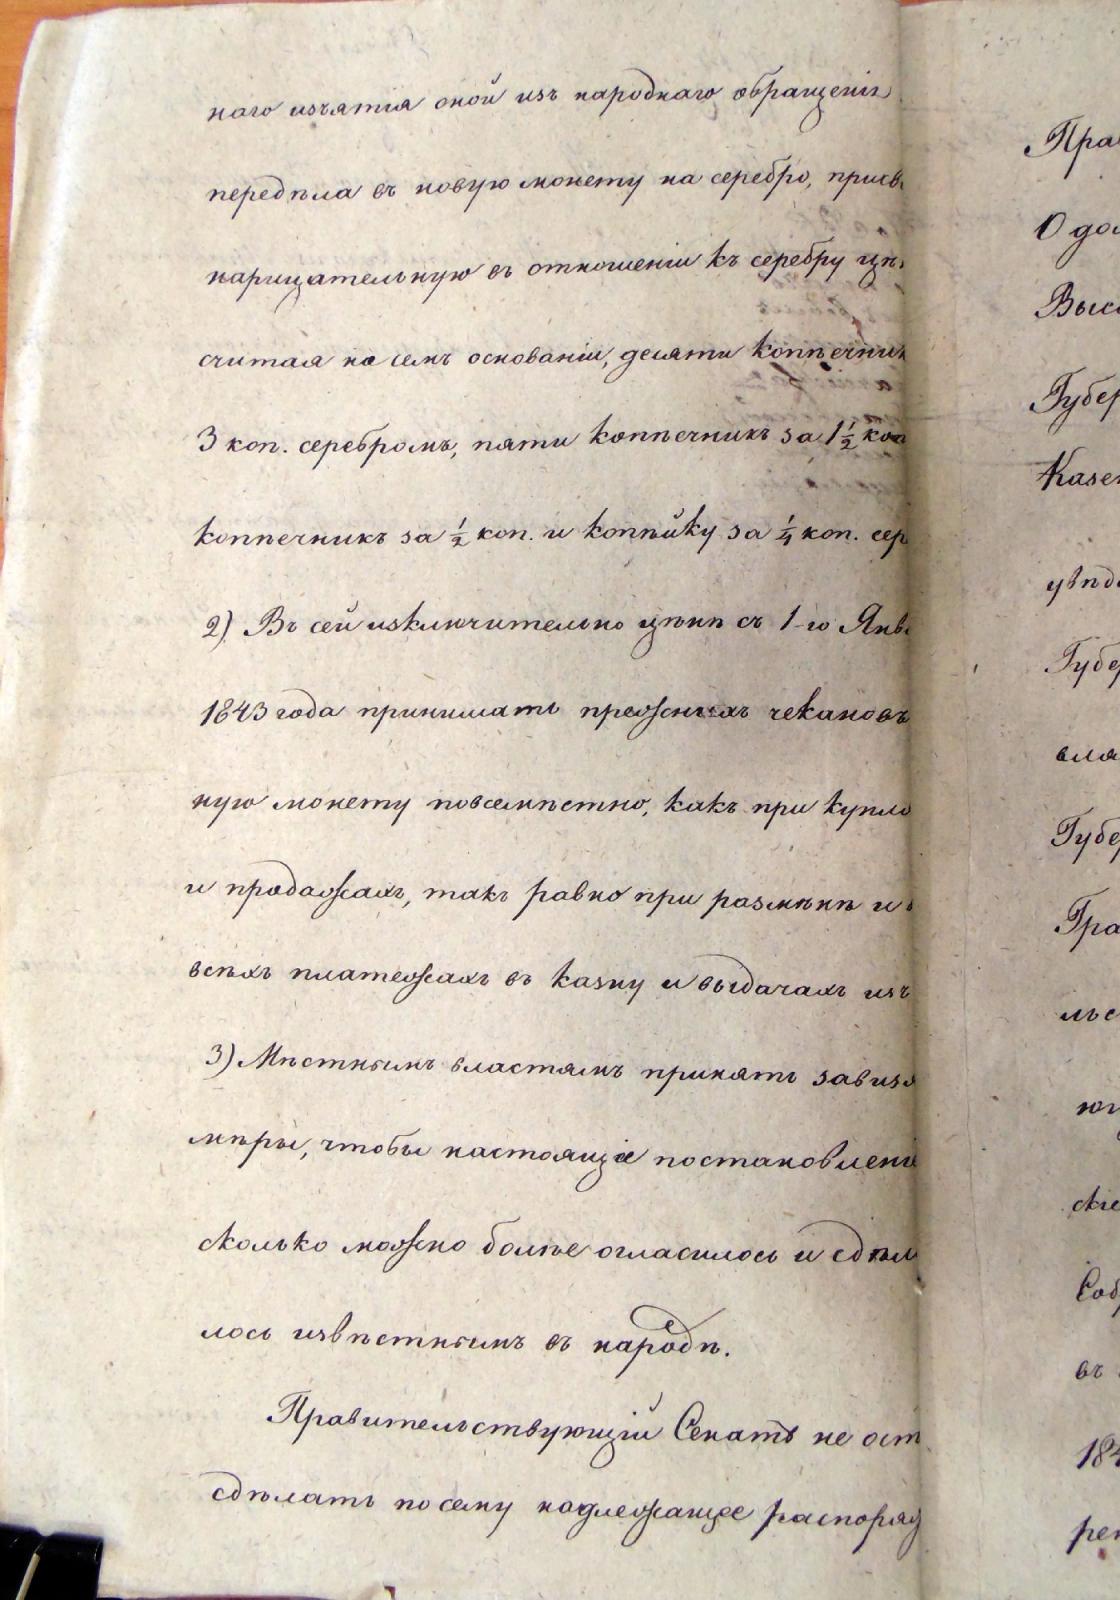 наго изъятія оной изъ народнаго обращенія
передѣла въ новую монету на серебро, присв
нарицательную въ отношеніи къ серебру цѣн
считая на семъ основаніи, десяти копѣечник
3 коп. серебромъ, пяти копѣечникъ за 1½ коп
копѣечникъ за ½ коп. и копѣйку за ¼ коп. сер
2) Въ сей исключительно цѣнѣ съ 1-го Янва
1843 года принимать прежнихъ чекановъ
ную монету повсемѣстно, какъ при купле
и продажахъ, такъ равно при размѣнѣ и в
всѣхъ платежахъ въ казну и выдачахъ изъ
3) Мѣстнымъ властямъ принять завися
мѣры, чтобы настоящіе постановленіе
сколько можно болѣе огласилось и сдѣла
лось извѣстнымъ въ народѣ.
Правительствующій Сенатъ не ост
сдѣлать по сему надлежащее распоряд
Пра
О дол
Высо
Губер
Казен
увѣдо
Губер
вля
Губер
Гра
льс
юг
скіе
Соб
въ
184
рен